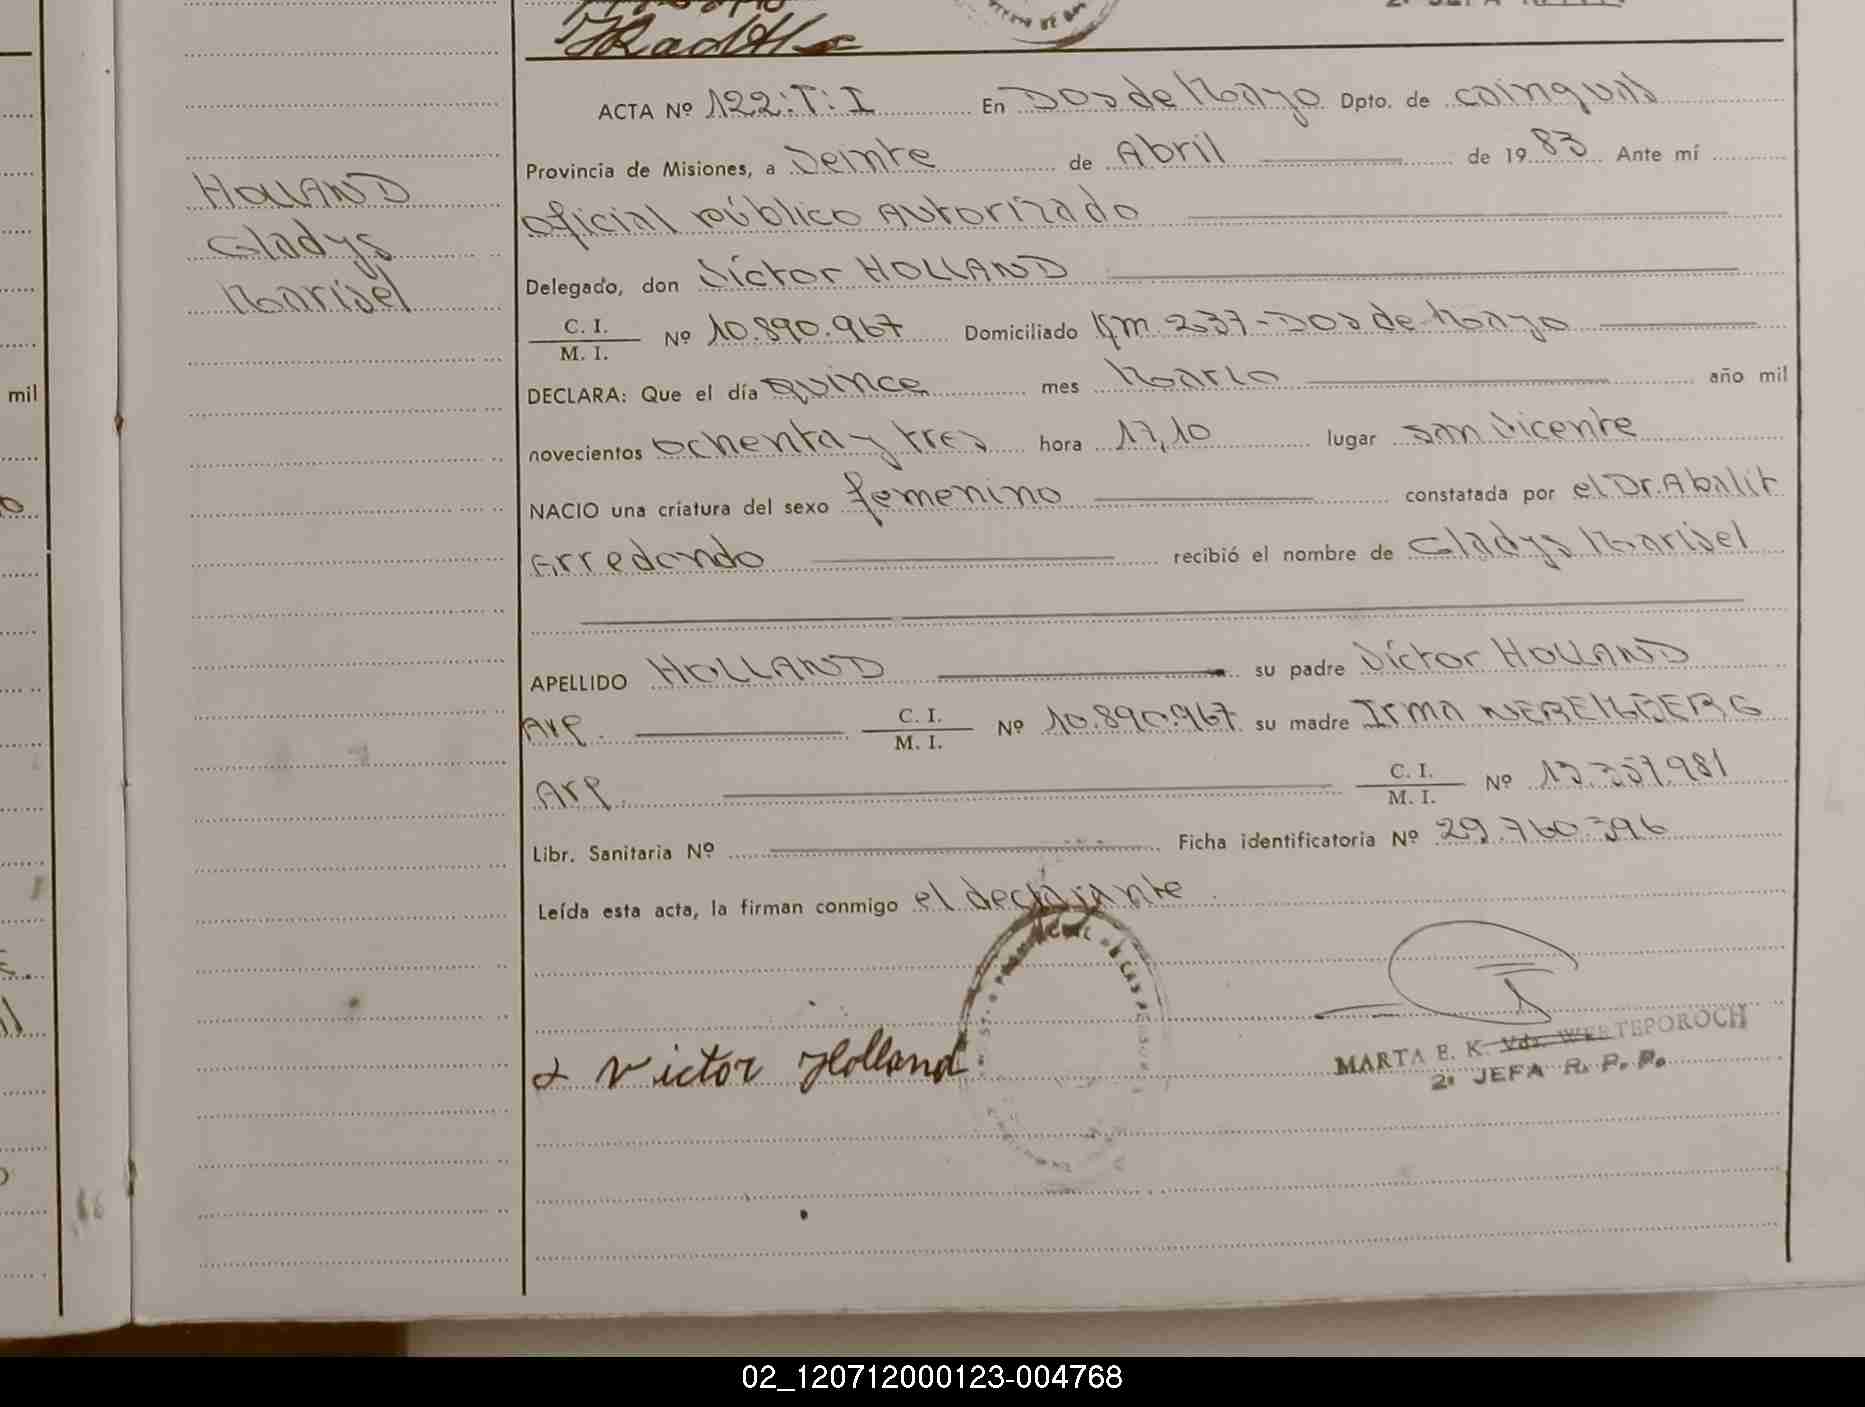 ACTA Nº 122:T:I En Dos de Mayo Dpto. de Cainguás
Provincia de Misiones, a Veinte de Abril de 1983 Ante mí
Oficial público Autorizado
HOLLAND
Gladys
Marisel
Delegado, don Víctor HOLLAND
C. I.
M. I. Nº 10.890.967 Domiciliado Km 237-Dos de Mayo
DECLARA: Que el día quince mes Marzo año mil
mil
novecientos ochenta y tres hora 17,10 lugar San Vicente
NACIO una criatura del sexo femenino constatada por el Dr. Abalit
Arredondo recibió el nombre de Gladys Marisel
APELLIDO HOLLAND su padre Víctor HOLLAND
Arg. C. I.
M. I. Nº 10.890.967 su madre Irma
Arg. C. I.
M. I. Nº
Libr. Sanitaria Nº Ficha identificatoria Nº 29.760.396
Leída esta acta, la firman conmigo el declarante
Victor Holland
MARTA E. K. Vda. WERTEPOROCH
2ª JEFA R. P. P.
02_120712000123-004768